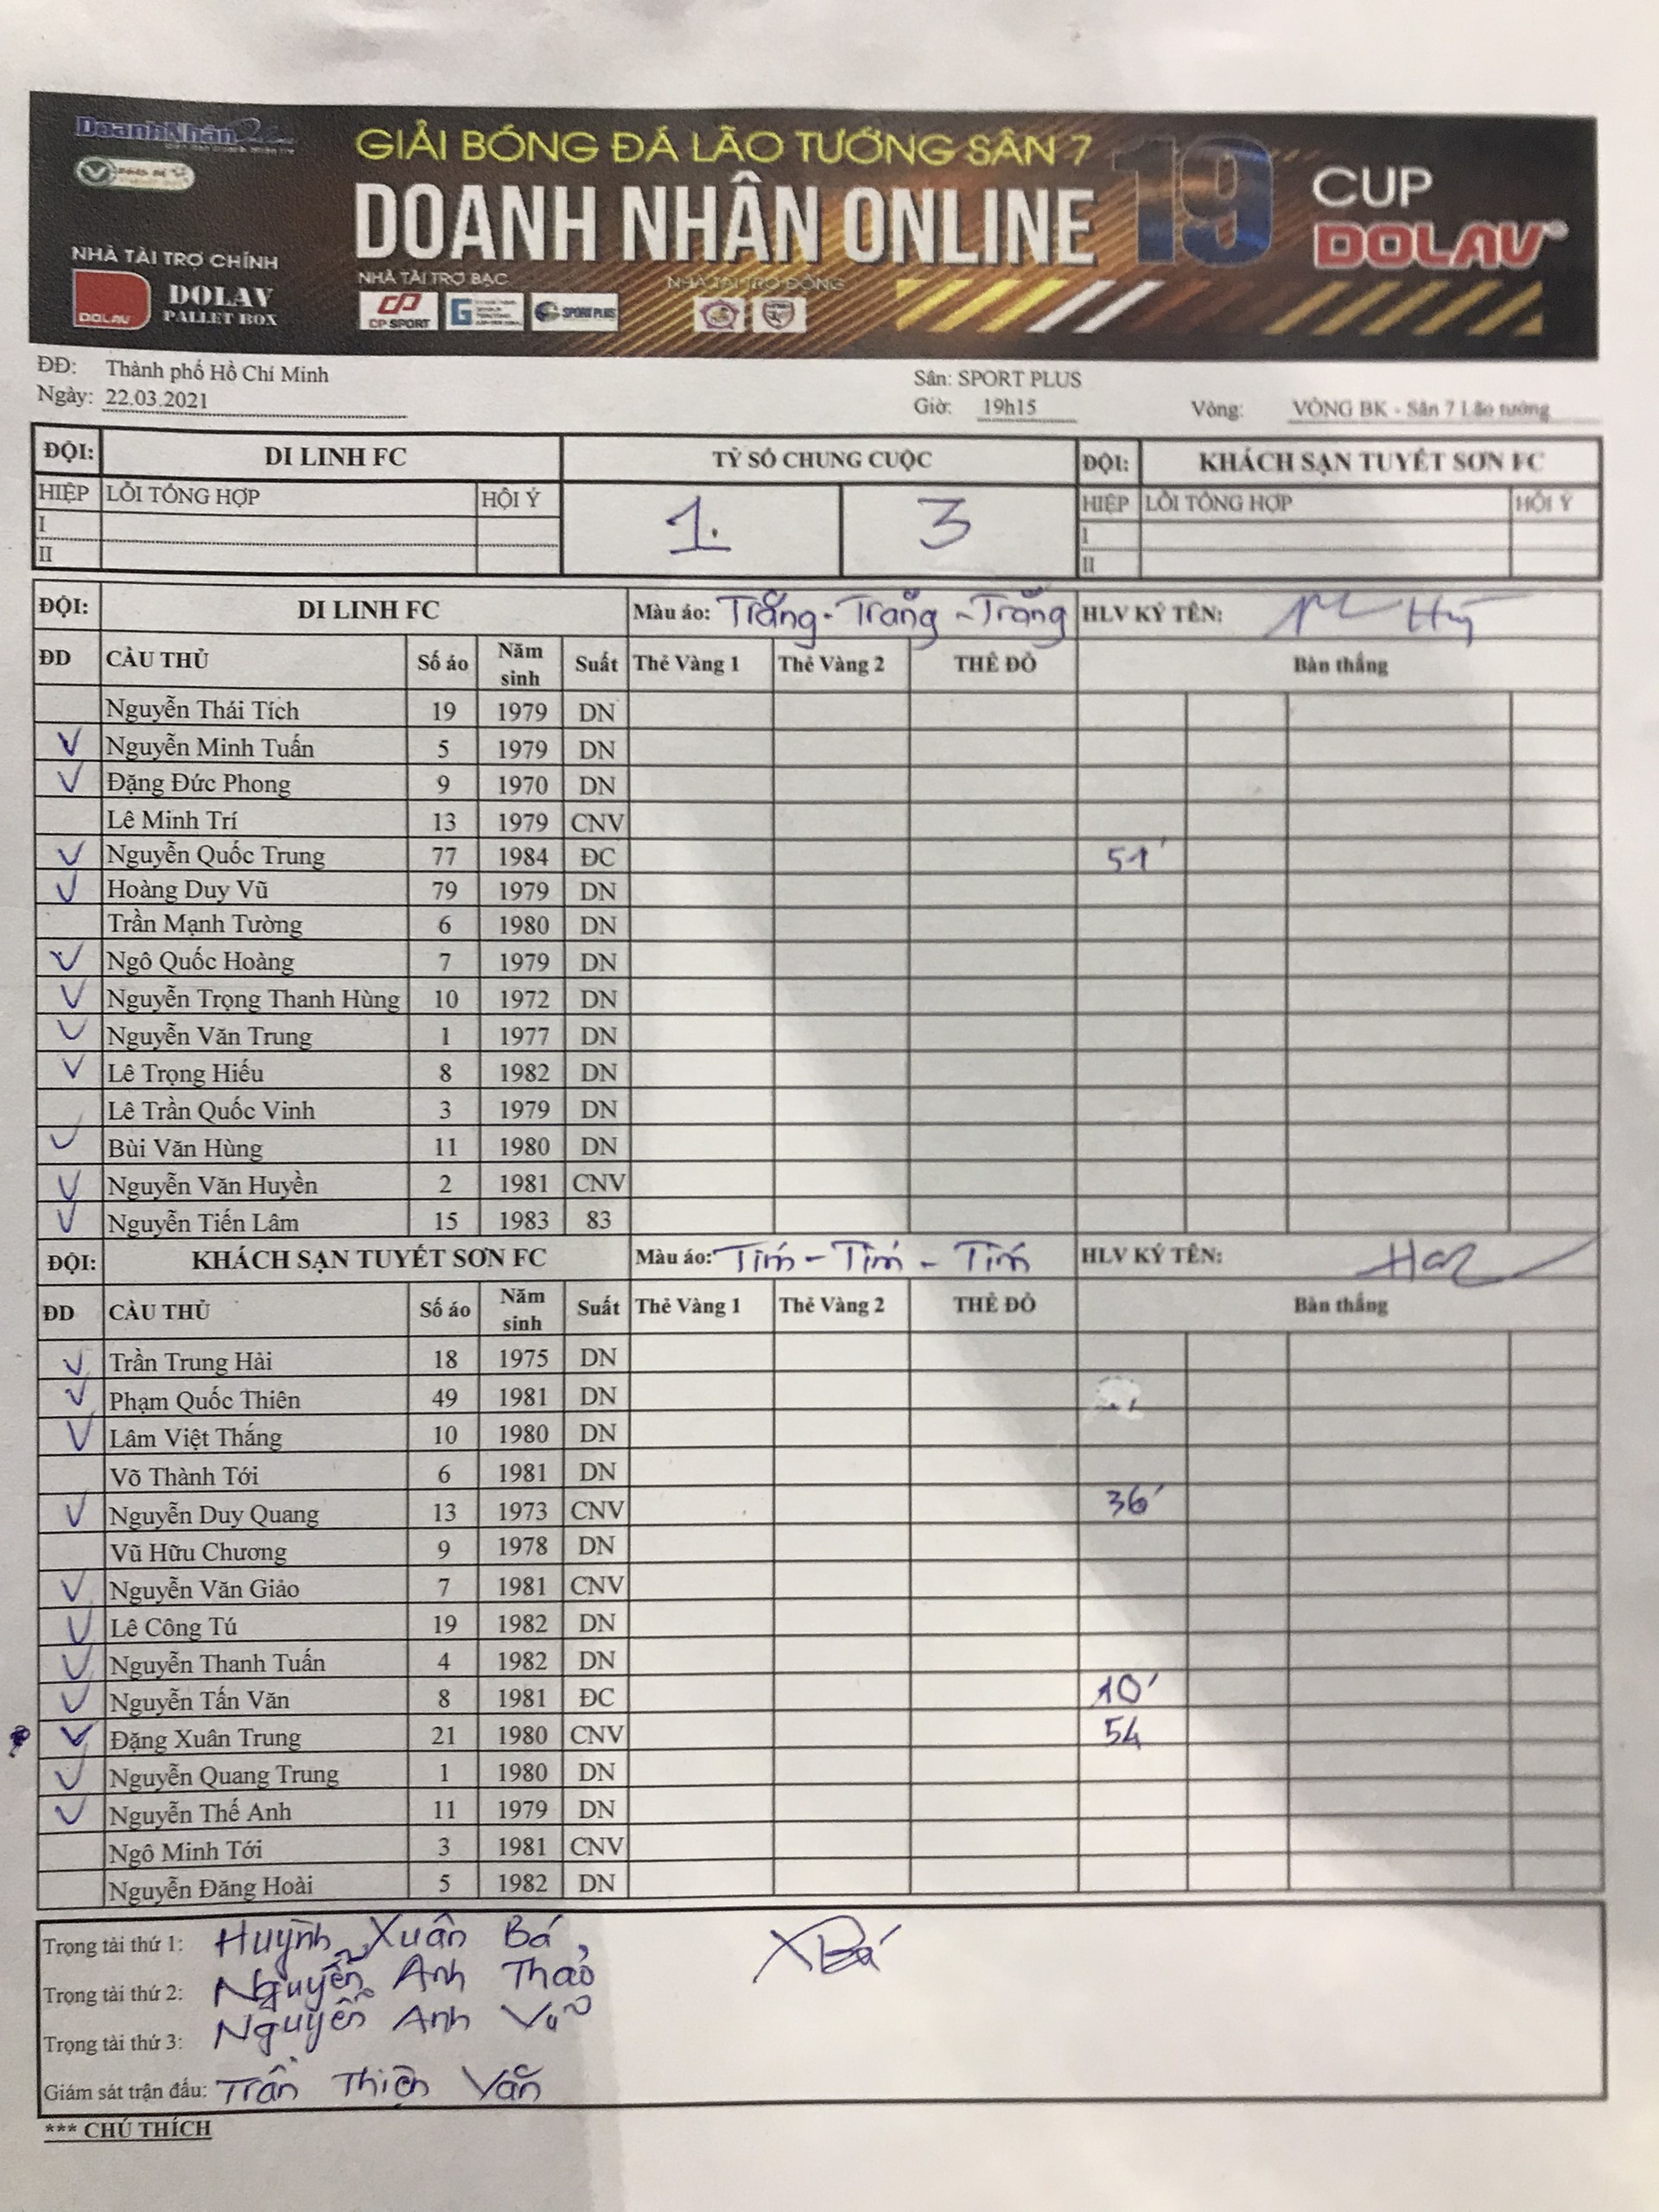 DoanhNhân
GIẢI BÓNG ĐÁ LÃO TƯỚNG SÂN 7
DOANH NHÂN ONLINE 19
CUP
DOLAV
NHÀ TÀI TRỢ CHÍNH
DOLAV
DOLAV
PALLET BOX
NHÀ TÀI TRỢ BẠC
CP SPORT
SPORT PLUS
NHÀ TÀI TRỢ ĐỒNG
ĐĐ: Thành phố Hồ Chí Minh
Sân: SPORT PLUS
Ngày: 22.03.2021
Giờ: 19h15
Vòng: VÒNG BK - Sân 7 Lão tướng
ĐỘI: DI LINH FC TỶ SỐ CHUNG CUỘC ĐỘI: KHÁCH SẠN TUYẾT SƠN FC
HIỆP LỖI TỔNG HỢP HỘI Ý 1. 3 HIỆP LỖI TỔNG HỢP HỘI Ý
I I
II II
ĐỘI: DI LINH FC Màu áo: Trắng - Trắng - Trắng HLV KÝ TÊN:
ĐD CẦU THỦ Số áo Năm sinh Suất Thẻ Vàng 1 Thẻ Vàng 2 THẺ ĐỎ Bàn thắng
Nguyễn Thái Tích 19 1979 DN
Nguyễn Minh Tuấn 5 1979 DN
Đặng Đức Phong 9 1970 DN
Lê Minh Trí 13 1979 CNV
Nguyễn Quốc Trung 77 1984 ĐC 51'
Hoàng Duy Vũ 79 1979 DN
Trần Mạnh Tường 6 1980 DN
Ngô Quốc Hoàng 7 1979 DN
Nguyễn Trọng Thanh Hùng 10 1972 DN
Nguyễn Văn Trung 1 1977 DN
Lê Trọng Hiếu 8 1982 DN
Lê Trần Quốc Vinh 3 1979 DN
Bùi Văn Hùng 11 1980 DN
Nguyễn Văn Huyền 2 1981 CNV
Nguyễn Tiến Lâm 15 1983 83
ĐỘI: KHÁCH SẠN TUYẾT SƠN FC Màu áo: Tím - Tím - Tím HLV KÝ TÊN:
ĐD CẦU THỦ Số áo Năm sinh Suất Thẻ Vàng 1 Thẻ Vàng 2 THẺ ĐỎ Bàn thắng
Trần Trung Hải 18 1975 DN
Phạm Quốc Thiên 49 1981 DN
Lâm Việt Thắng 10 1980 DN
Võ Thành Tới 6 1981 DN
Nguyễn Duy Quang 13 1973 CNV 36'
Vũ Hữu Chương 9 1978 DN
Nguyễn Văn Giảo 7 1981 CNV
Lê Công Tú 19 1982 DN
Nguyễn Thanh Tuấn 4 1982 DN
Nguyễn Tấn Văn 8 1981 ĐC 10'
Đặng Xuân Trung 21 1980 CNV 54
Nguyễn Quang Trung 1 1980 DN
Nguyễn Thế Anh 11 1979 DN
Ngô Minh Tới 3 1981 CNV
Nguyễn Đăng Hoài 5 1982 DN
Trọng tài thứ 1: Huỳnh Xuân Bá XBá
Trọng tài thứ 2: Nguyễn Anh Thảo
Trọng tài thứ 3: Nguyễn Anh Vũ
Giám sát trận đấu: Trần Thiện Văn
*** CHÚ THÍCH